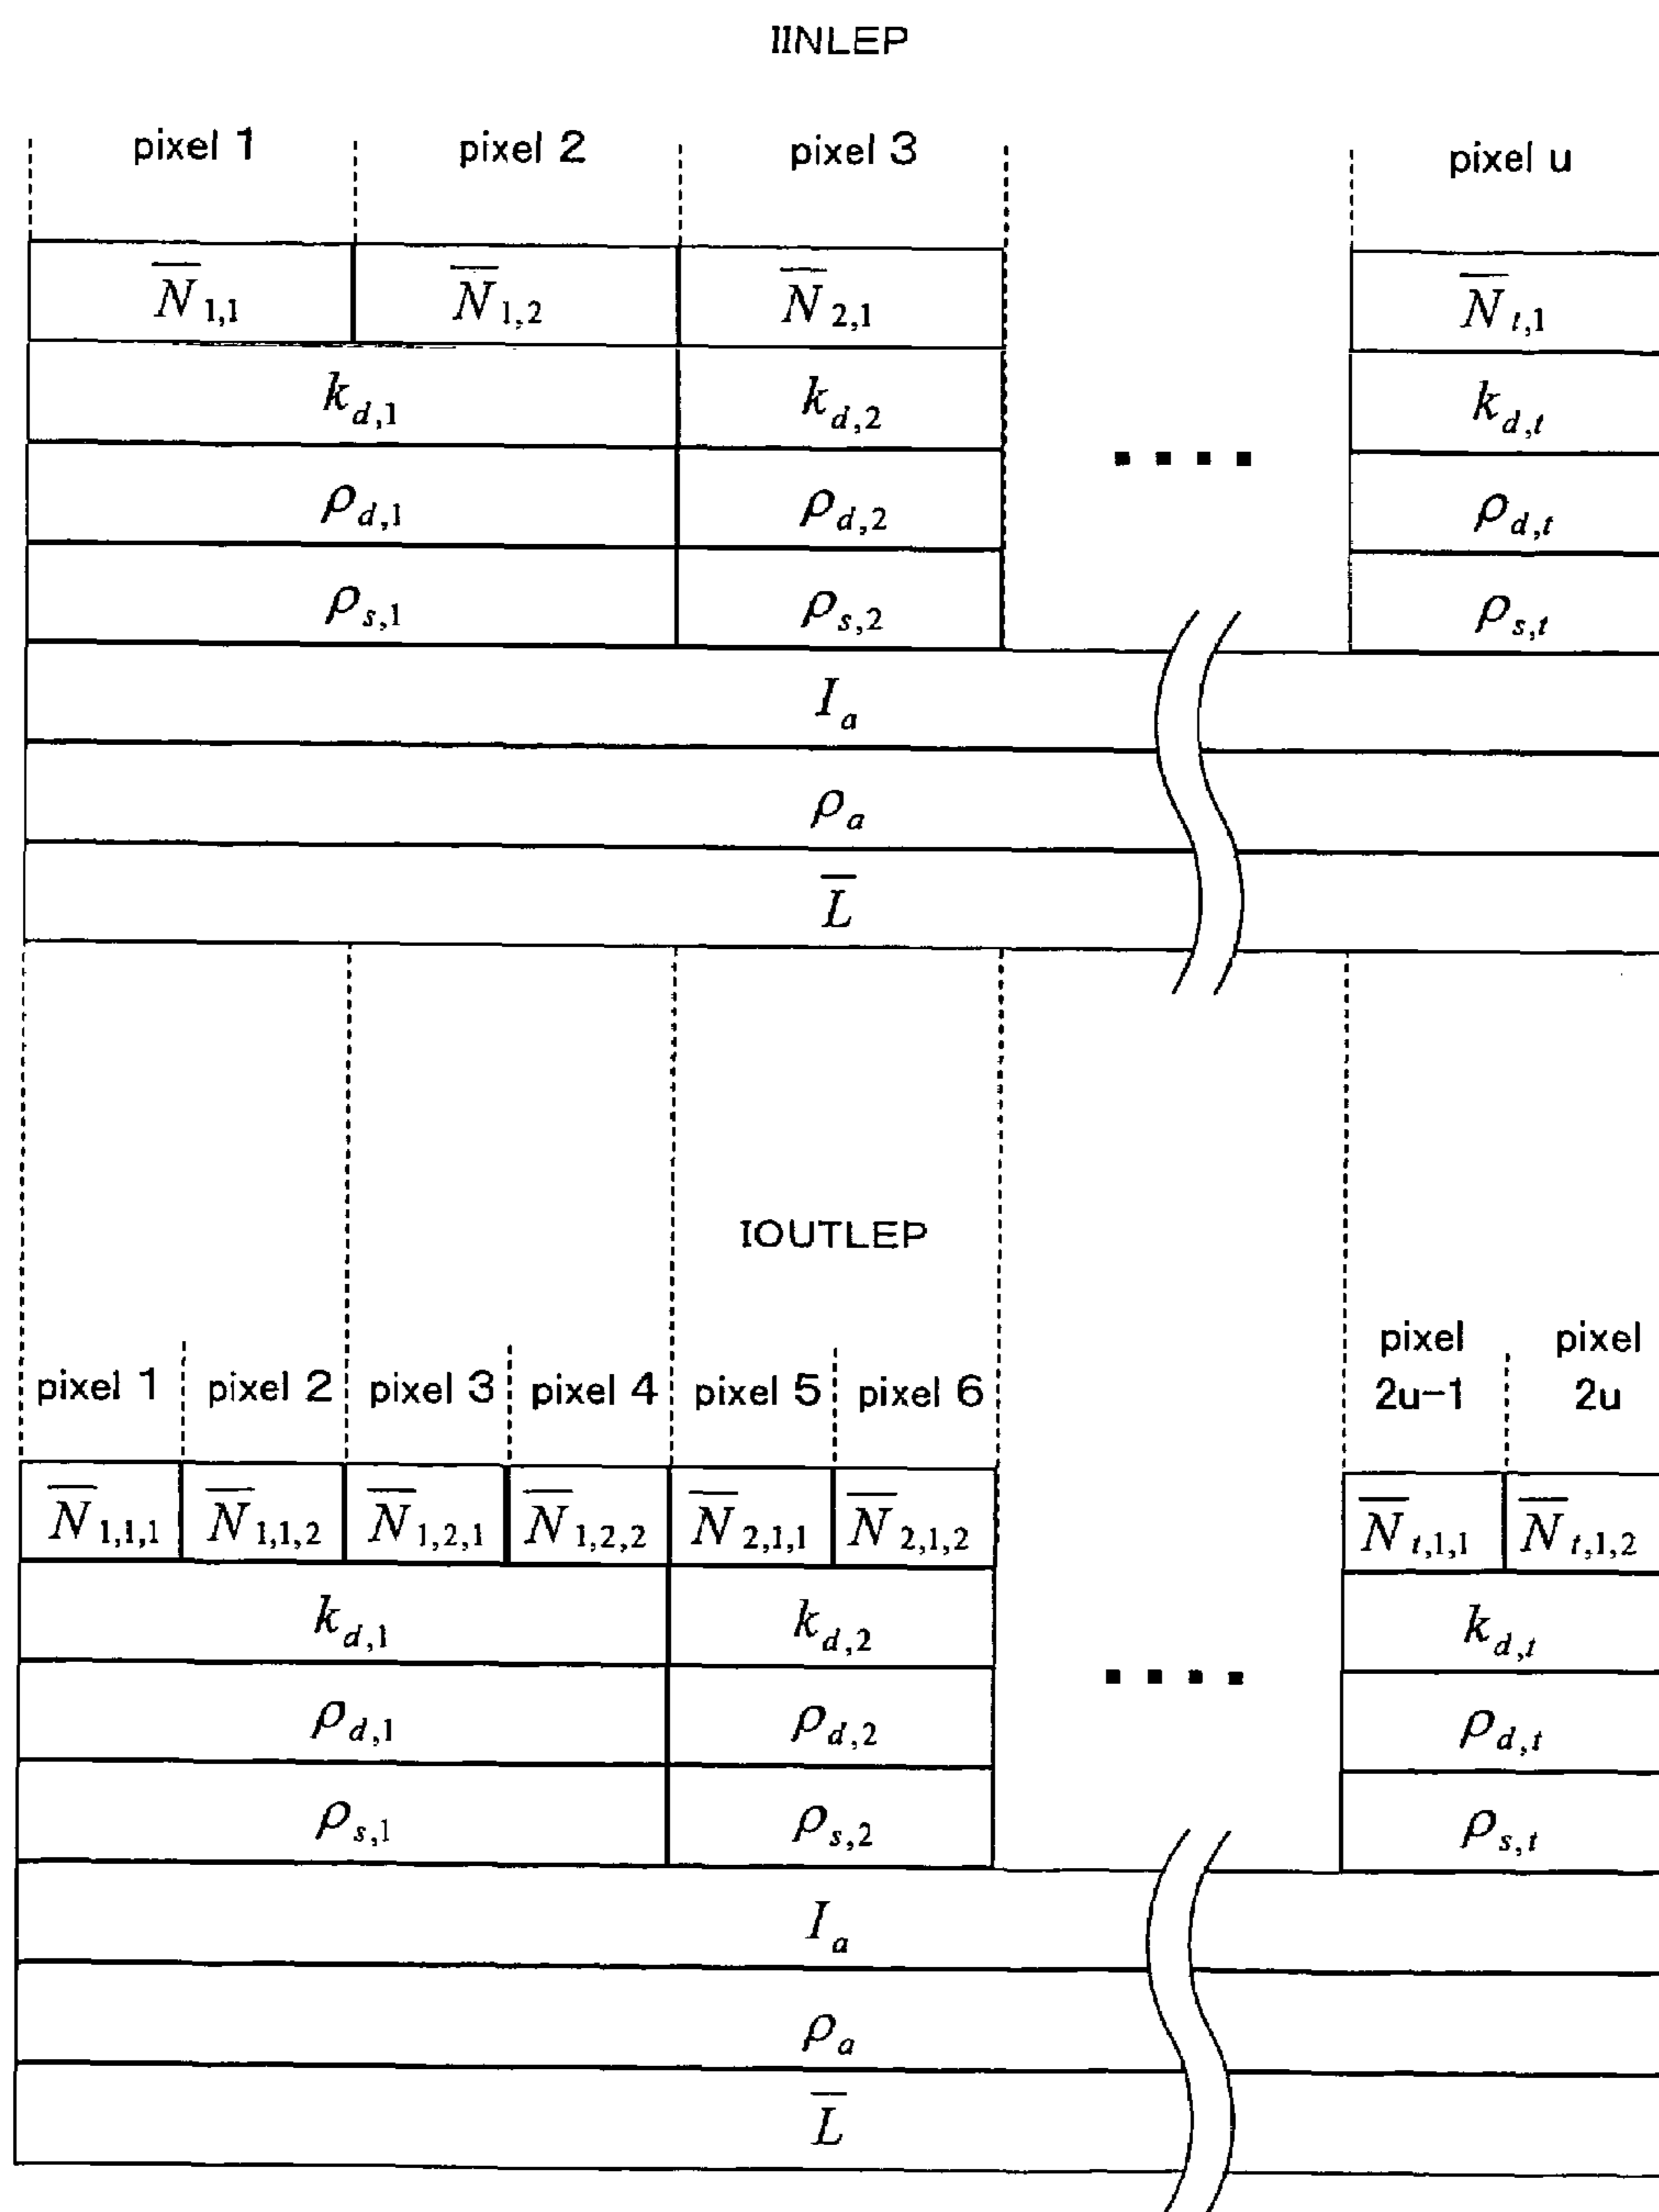 IINLEP
pixel 1 pixel 2 pixel 3 pixel u
N̅₁,₁ N̅₁,₂ N̅₂,₁ N̅ₜ,₁
k_d,1 k_d,2 k_d,t
ρ_d,1 ρ_d,2 ρ_d,t
ρ_s,1 ρ_s,2 ρ_s,t
I_a
ρ_a
L̅
IOUTLEP
pixel 1 pixel 2 pixel 3 pixel 4 pixel 5 pixel 6 pixel 2u-1 pixel 2u
N̅₁,₁,₁ N̅₁,₁,₂ N̅₁,₂,₁ N̅₁,₂,₂ N̅₂,₁,₁ N̅₂,₁,₂ N̅ₜ,₁,₁ N̅ₜ,₁,₂
k_d,1 k_d,2 k_d,t
ρ_d,1 ρ_d,2 ρ_d,t
ρ_s,1 ρ_s,2 ρ_s,t
I_a
ρ_a
L̅